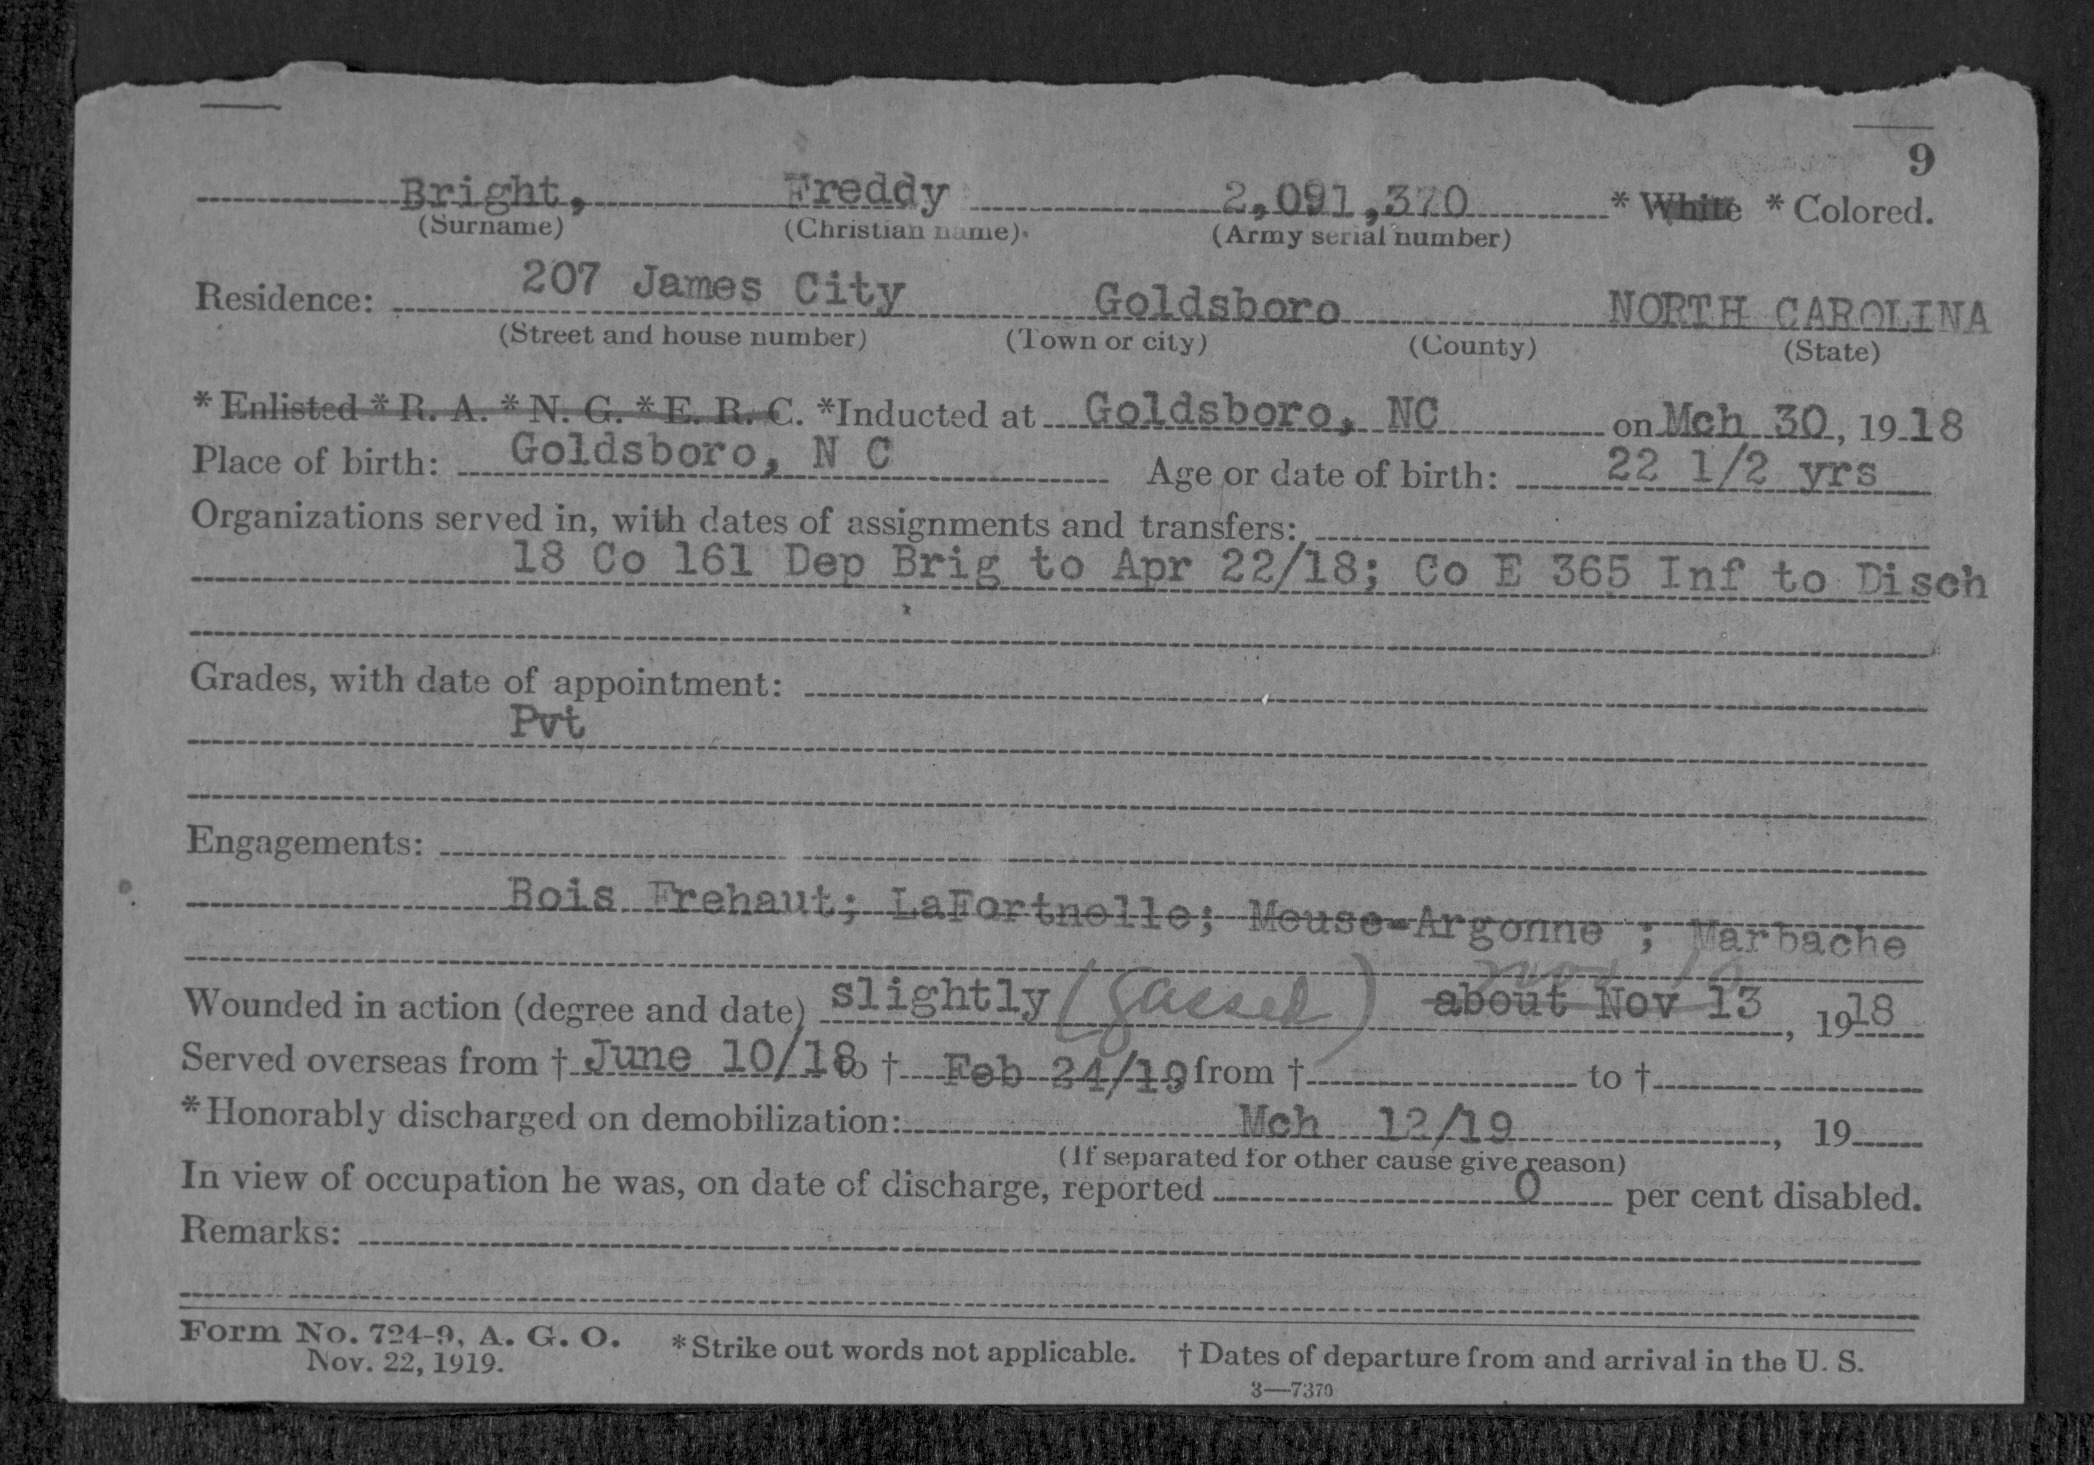 9
Bright, Freddy 2,091,370 * White * Colored.
(Surname) (Christian name) (Army serial number)
Residence: 207 James City Goldsboro NORTH CAROLINA
(Street and house number) (Town or city) (County) (State)
* Enlisted * R. A. * N. G. * E. R. C. *Inducted at Goldsboro, NC on Mch 30, 1918
Place of birth: Goldsboro, N C Age or date of birth: 22 1/2 yrs
Organizations served in, with dates of assignments and transfers:
18 Co 161 Dep Brig to Apr 22/18; Co E 365 Inf to Disch
Grades, with date of appointment:
Pvt
Engagements:
Bois Frehaut; LaFortnelle; Meuse-Argonne ; Marbache
Nov 10
Wounded in action (degree and date) slightly (gassed) about Nov 13, 1918
Served overseas from † June 10/18 to † Feb 24/19, from † to †
*Honorably discharged on demobilization: Mch 12/19, 19
(If separated for other cause give reason)
In view of occupation he was, on date of discharge, reported 0 per cent disabled.
Remarks:
Form No. 724-9, A. G. O. *Strike out words not applicable. † Dates of departure from and arrival in the U. S.
Nov. 22, 1919.
3—7370